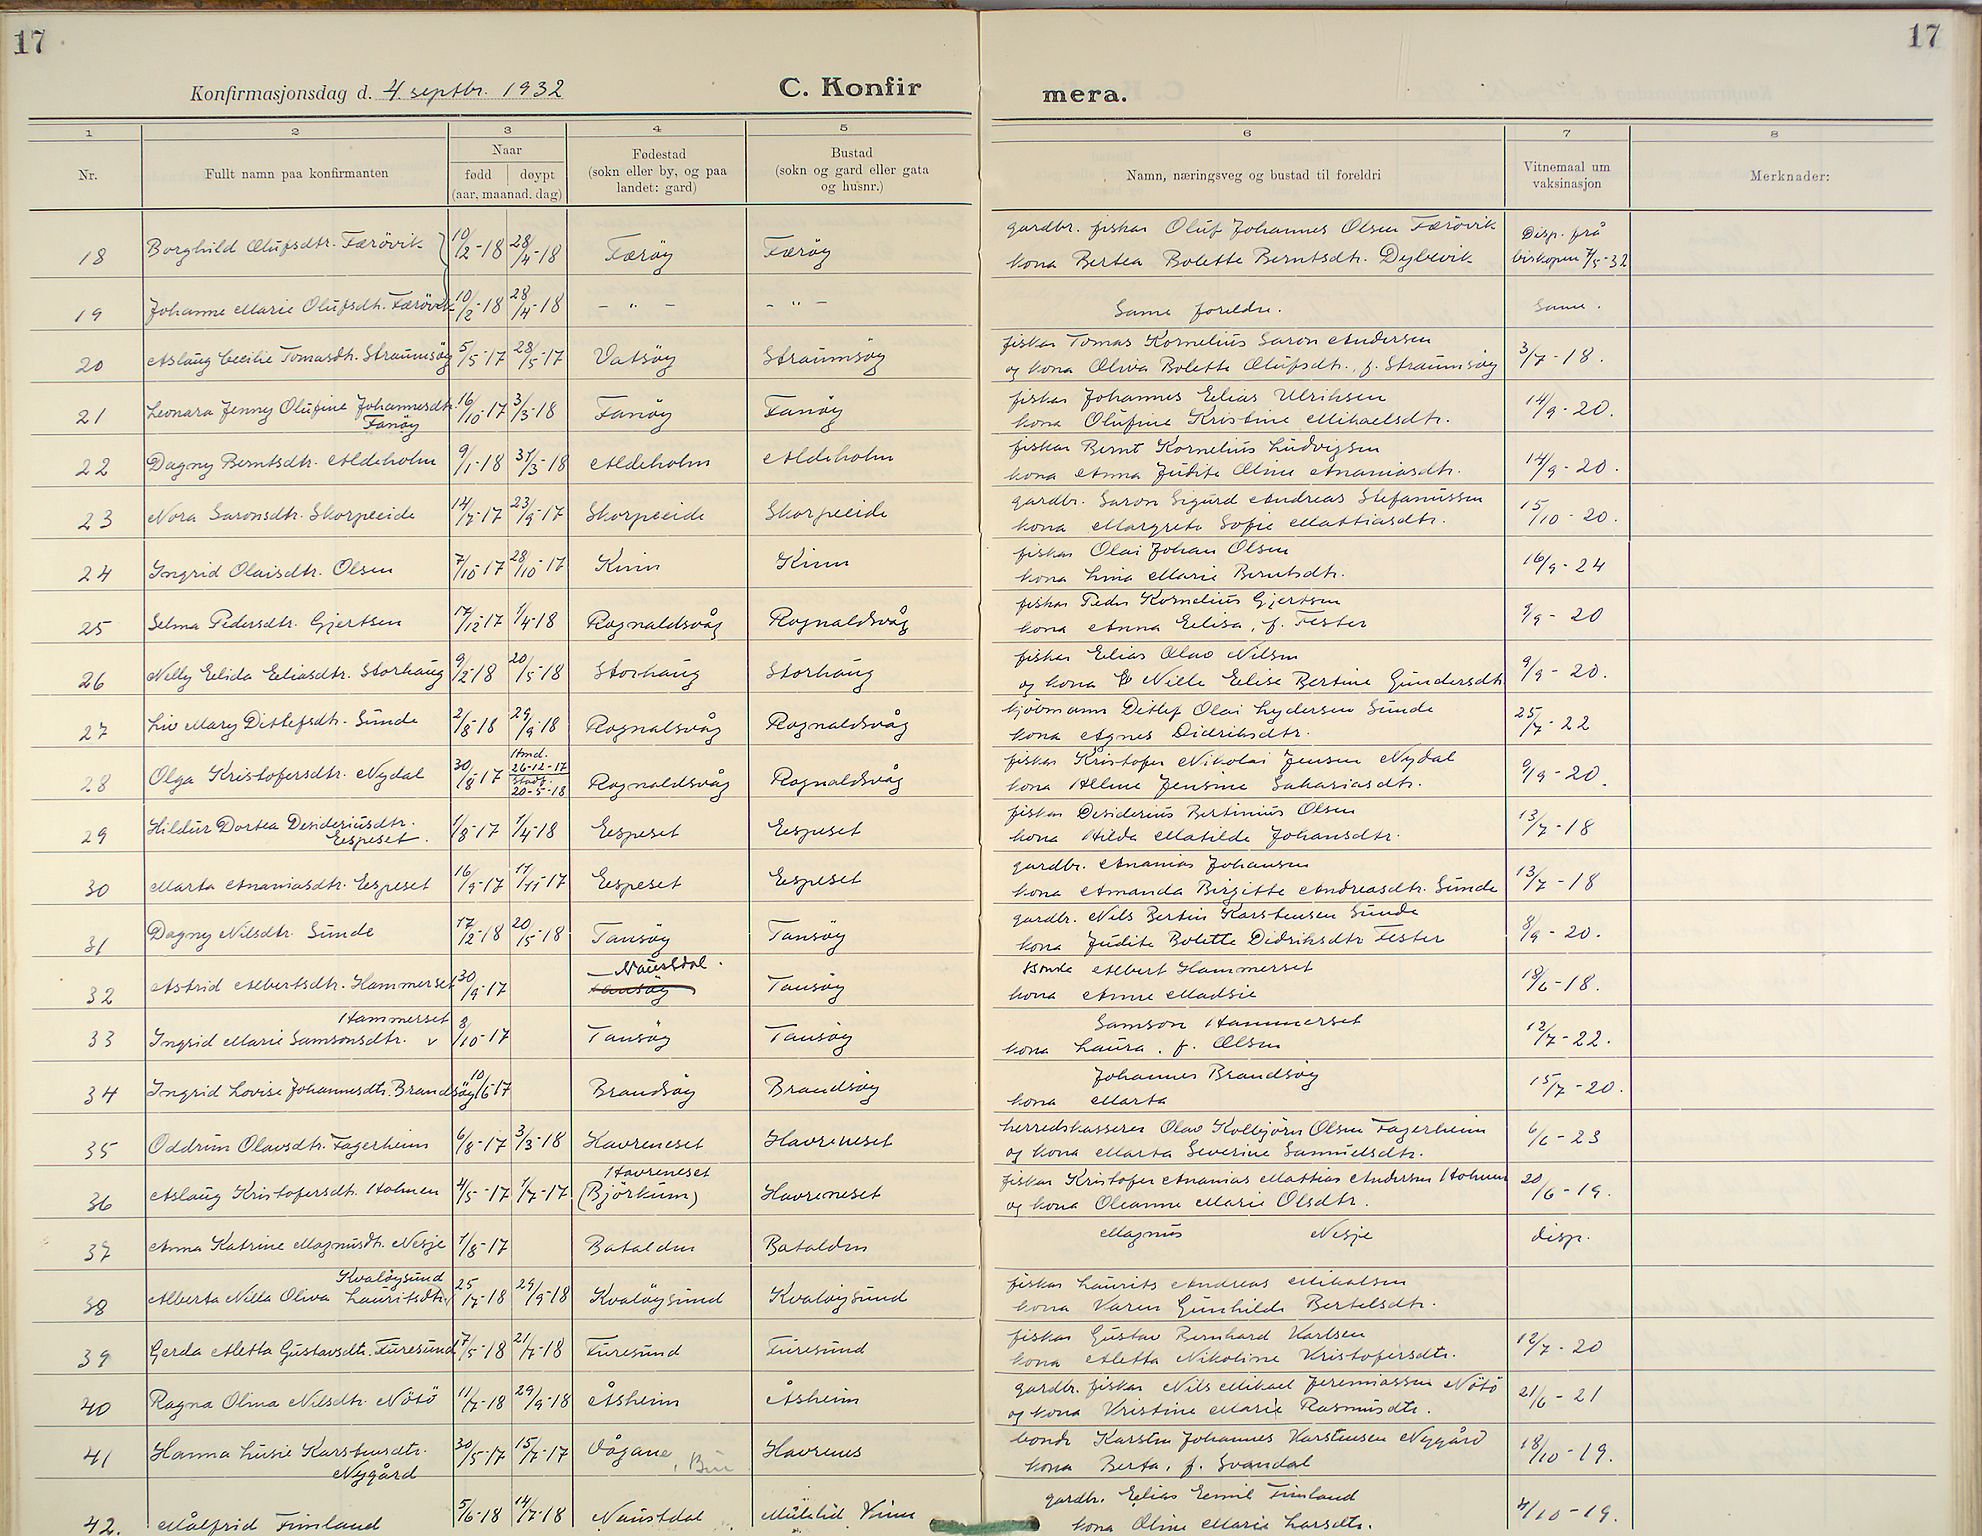 17
17
Konfirmasjonsdag d. 4. septbr. 1932
C. Konfir
mera.
1 2 3 4 5 6 7 8
Nr.
Fullt namn paa konfirmanten
Naar
fødd døypt
(aar, maanad. dag)
Fødestad
(sokn eller by, og paa
landet: gard)
Bustad
(sokn og gard eller gata
og husnr.)
Namn, næringsveg og bustad til foreldri
Vitnemaal um
vaksinasjon
Merknader:
gardbr. fiskar Oluf Johannes Olsen Færövik Disp. frå
18 Borghild Olufsdtr. Færövik 10/2-18 28/4-18 Færöy Færöy kona Bertea Bolette Berntsdtr. Dybevik biskopen 7/5-32
19 Johanne Marie Olufsdtr. Færövik 10/2-18 28/4-18 – " – – " – Same foreldre. Same.
fiskar Tomas Kornelius Saron Andersen
20 Aslaug Cecilie Tomasdtr. Straumsöy 5/5-17 28/5-17 Vatsöy Straumsöy og kona Oliva Bolette Olufsdtr., f. Straumsöy 3/7-18.
fiskar Johannes Elias Ulriksen
21 Leonara Jenny Olufine Johannesdtr. 16/10-17 3/3-18 Fanöy Fanöy kona Olufine Kristine Mikaelsdtr. 14/9-20.
Fanöy
fiskar Bernt Kornelius Ludvigsen
22 Dagny Berntsdtr. Aldeholm 9/1-18 31/3-18 Aldeholm Aldeholm kona Anna Judite Oline Ananiasdtr. 14/9-20.
gardbr. Saron Sigurd Andreas Stefanussen
23 Nora Saronsdtr. Skorpeeide 14/7-17 23/9-17 Skorpeeide Skorpeeide kona Margrete Sofie Mattiasdtr. 15/10-20.
fiskar Olai Johan Olsen
24 Ingrid Olaisdtr. Olsen 7/10-17 28/10-17 Kinn Kinn kona Lina Marie Berntsdtr. 16/9-24
fiskar Peder Kornelius Gjertsen
25 Selma Pedersdtr. Gjertsen 17/12-17 1/4-18 Rognaldsvåg Rognaldsvåg kona Anna Elisa, f. Fester 9/9-20
fiskar Elias Olav Nilsen
26 Nelly Elida Eliasdtr. Storhaug 9/2-18 20/5-18 Storhaug Storhaug og kona Nille Elise Bertine Gundersdtr 9/9-20.
kjöbmann Ditlef Olai Lydersen Sunde
27 Liv Mary Ditlefsdtr. Sunde 2/8-18 29/9-18 Rognalsvåg Rognaldsvåg kona Agnes Didriksdtr. 25/7-22
Hmd. fiskar Kristofer Nikolai Jensen Nydal
28 Olga Kristofersdtr. Nydal 30/8-17 26-12-17 Stadf. 20-5-18 Rognaldsvåg Rognaldsvåg kona Alline Jensine Sakariasdtr. 9/9-20.
fiskar Desiderius Bertinius Olsen
29 Hildur Dortea Desideriusdtr. 1/8-17 1/4-18 Eespeset Eespeset kona Hilda Matilde Johansdtr. 13/7-18
Eespeset.
gardbr. Ananias Johansen
30 Marta Ananiasdtr. Eespeset 16/9-17 11/11-17 Eespeset Eespeset kona Amanda Birgitte Andreasdtr. Sunde 13/7-18
gardbr. Nils Bertin Karstensen Sunde
31 Dagny Nilsdtr. Sunde 17/2-18 20/5-18 Tansöy Tansöy kona Judite Bolette Didriksdtr Fester 8/9-20.
Naustdal. Bonde Albert Hammerset
32 Astrid Albertsdtr. Hammerset 30/9-17 Tansöy Tansöy kona Anne Madsie 18/6-18.
Hammerset Samson Hammerset
33 Ingrid Marie Samsonsdtr. v 8/10-17 Tansöy Tansöy kona Laura, f. Olsen 12/7-22.
Johannes Brandsöy
34 Ingrid Lovise Johannesdtr. Brandsöy 10/6-17 Brandsöy Brandsöy kona Marta 15/7-20.
herredskasserer Olav Kolbjörn Olsen Fagerheim
35 Oddrun Olavsdtr. Fagerheim 6/8-17 3/3-18 Havreneset Havreneset og kona Marta Severine Samuelsdtr. 6/6-23
Havreneset fiskar Kristofer Ananias Mattias Andersen Holmen
36 Aslaug Kristofersdtr. Holmen 4/5-17 1/7-17 (Björkum) Havreneset og kona Oleanne Marie Olsdtr. 20/6-19.
37 Anna Katrine Magnusdtr. Nesje 1/8-17 Batalden Batalden Magnus Nesje disp.
Kvalöysund fiskar Laurits Andreas Mikalsen
38 Alberta Nella Oliva Lauritsdtr. 25/7-18 29/9-18 Kvalöysund Kvalöysund kona Karen Gunhilde Bertelsdtr.
fiskar Gustav Bernhard Karlsen
39 Gerda Aletta Gustavsdtr. Furesund 17/5-18 21/7-18 Furesund Furesund kona Aletta Nikoline Kristofersdtr. 12/7-20
gardbr. fiskar Nils Mikael Jeremiassen Nötö
40 Ragna Olina Nilsdtr. Nötö 11/7-18 29/9-18 Åsheim Åsheim og kona Kristine Marie Rasmusdtr. 21/6-21
bonde Karsten Johannes Karstensen Nygård
41 Hanna Lusie Karstensdtr. 30/5-17 15/7-17 Vågane, Bru Havrenes kona Berta, f. Svandal 18/10-19.
Nygård
gardbr. Elias Emil Fimland
42. Målfrid Fimland 5/6-18 14/7-18 Naustdal Kinn kona Oline Marie Larsdtr. 4/10-19.